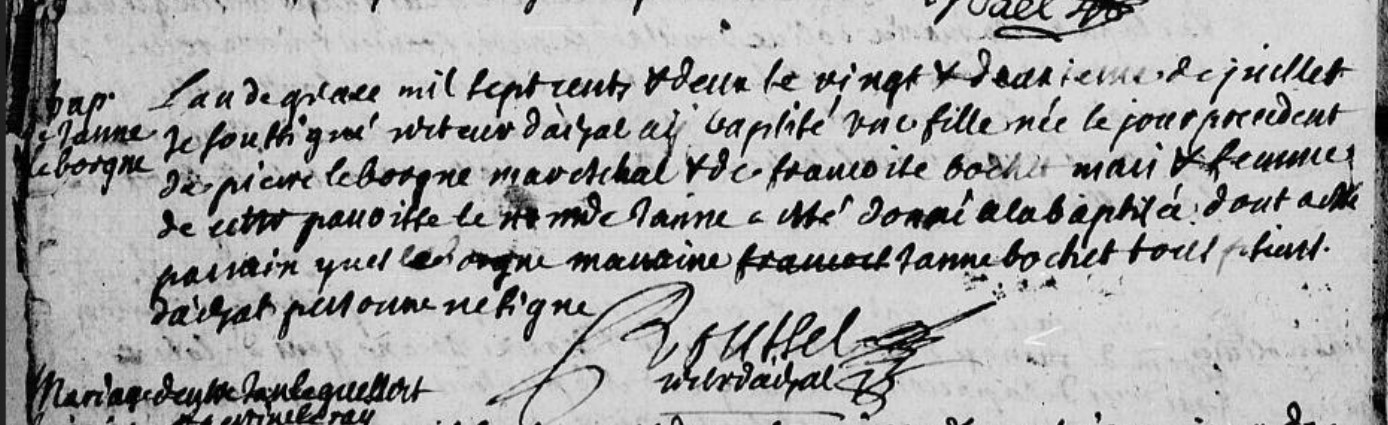 bap.
Janne
leborgne
L'an de grace mil sept cents & deux le vingt & deuxieme de juillet
Je soussigné recteur d'aizal aÿ baptisé une fille née le jour precedent
de pierre leborgne mareschal & de francoise bochet mari & femme
de cette paroisse le nom de Janne a esté donné a la baptisée dont a esté
parrain yues leborgne maraine Janne bochet tous
d'aizal personne ne signe
Roussel
recteur d'aizal
Mariage dentre Jan